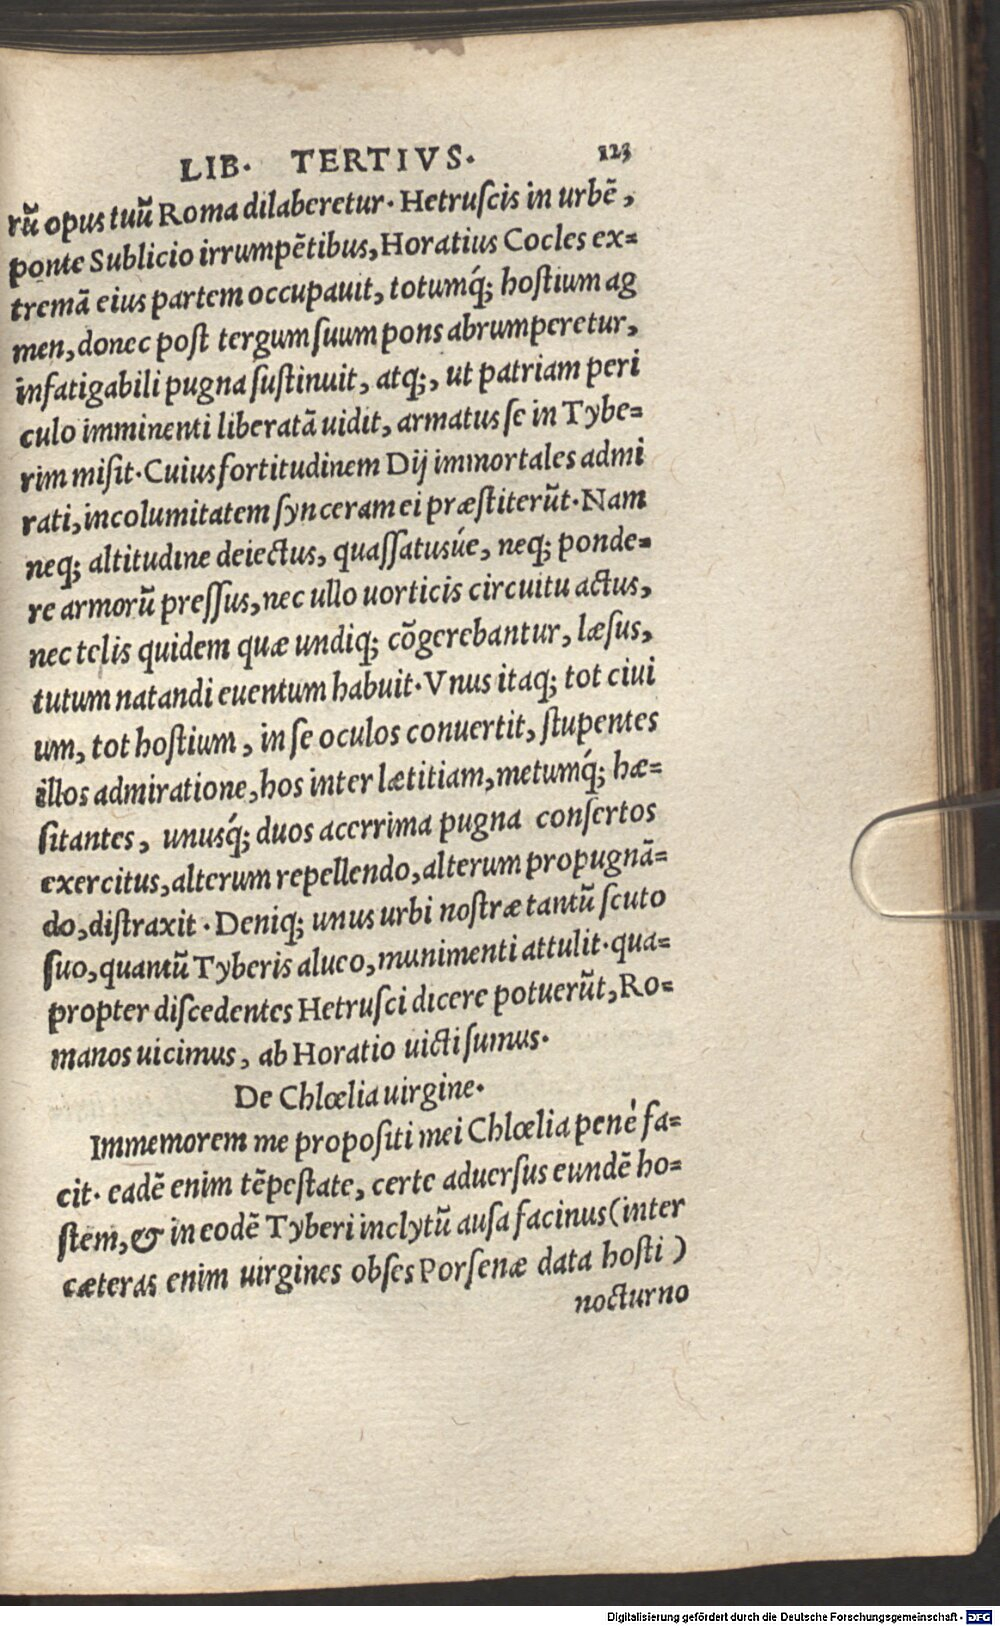 LIB. TERTIVS. 123
rũ opus tuũ Roma dilaberetur. Hetruſcis in urbẽ,
ponte Sublicio irrumpẽtibus, Horatius Cocles ex=
tremã eius partem occupauit, totumq́; hoſtium ag
men, donec poſt tergum ſuum pons abrumperetur,
infatigabili pugna ſuſtinuit, atq;, ut patriam peri
culo imminenti liberatã uidit, armatus ſe in Tybe=
rim miſit. Cuius fortitudinem Dij immortales admi
rati, incolumitatem ſynceram ei præſtiterũt. Nam
neq; altitudine deiectus, quaſſatusúe, neq; ponde=
re armorũ preſſus, nec ullo uorticis circuitu actus,
nec telis quidem quæ undiq; cõgerebantur, læſus,
tutum natandi euentum habuit. Vnus itaq; tot ciui
um, tot hoſtium, in ſe oculos conuertit, ſtupentes
illos admiratione, hos inter lætitiam, metumq́; hæ=
ſitantes, unusq́; duos acerrima pugna conſertos
exercitus, alterum repellendo, alterum propugnã=
do, diſtraxit. Deniq; unus urbi noſtræ tantũ ſcuto
ſuo, quantũ Tyberis alueo, munimenti attulit. qua=
propter diſcedentes Hetruſci dicere potuerũt, Ro=
manos uicimus, ab Horatio uicti ſumus.
De Chlœlia uirgine.
Immemorem me propoſiti mei Chlœlia penè fa=
cit. eadẽ enim tẽpeſtate, certe aduerſus eundẽ ho=
ſtem, & in eodẽ Tyberi inclytũ auſa facinus (inter
cæteras enim uirgines obſes Porſenæ data hoſti)
nocturno
Digitalisierung gefördert durch die Deutsche Forschungsgemeinschaft - DFG